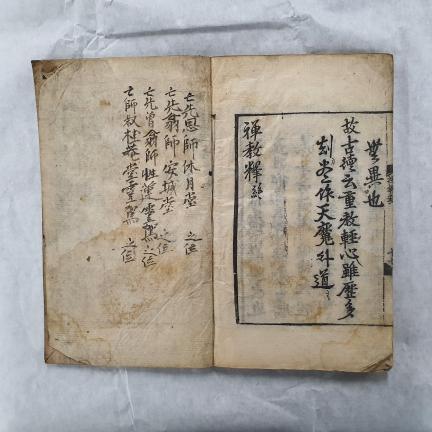 無異也
故古德云重教輕心雖歷多
刼盡作天魔外道
禪教釋終
亡先恩師休月堂 之位
亡先翁師安城堂 之位
亡先曾翁師性蓮堂靈駕之位
亡師叔桂菴堂靈駕 之位